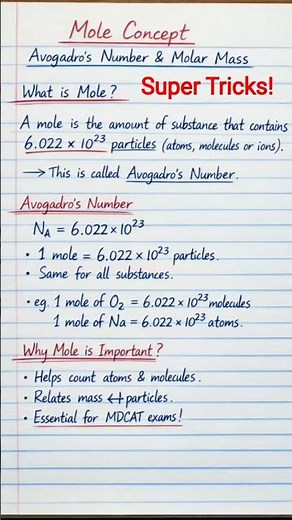 Mole Concept
Avogadro's Number & Molar Mass
What is Mole?
Super Tricks!
A mole is the amount of substance that contains
6.022 × 10²³ particles (atoms, molecules or ions).
→ This is called Avogadro's Number.
Avogadro's Number
N_A = 6.022 × 10²³
• 1 mole = 6.022 × 10²³ particles.
• Same for all substances.
• eg. 1 mole of O₂ = 6.022 × 10²³ molecules
1 mole of Na = 6.022 × 10²³ atoms.
Why Mole is Important?
• Helps count atoms & molecules.
• Relates mass ↔ particles.
• Essential for MDCAT exams!